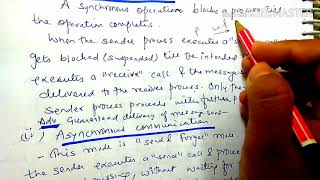 A synchronous operation blocks a process till
the operation completes.
When the sender process executes a "s
gets blocked (suspended) till the intended
executes a "receive" call & the message
delivered to the receiver process. Only then
Sender process proceeds with further
Adv. Guaranteed delivery of message
(ii) Asynchronous communication
- This mode is a "send & forget" mode.
the sender executes a "send" call & proceed
without waiting for